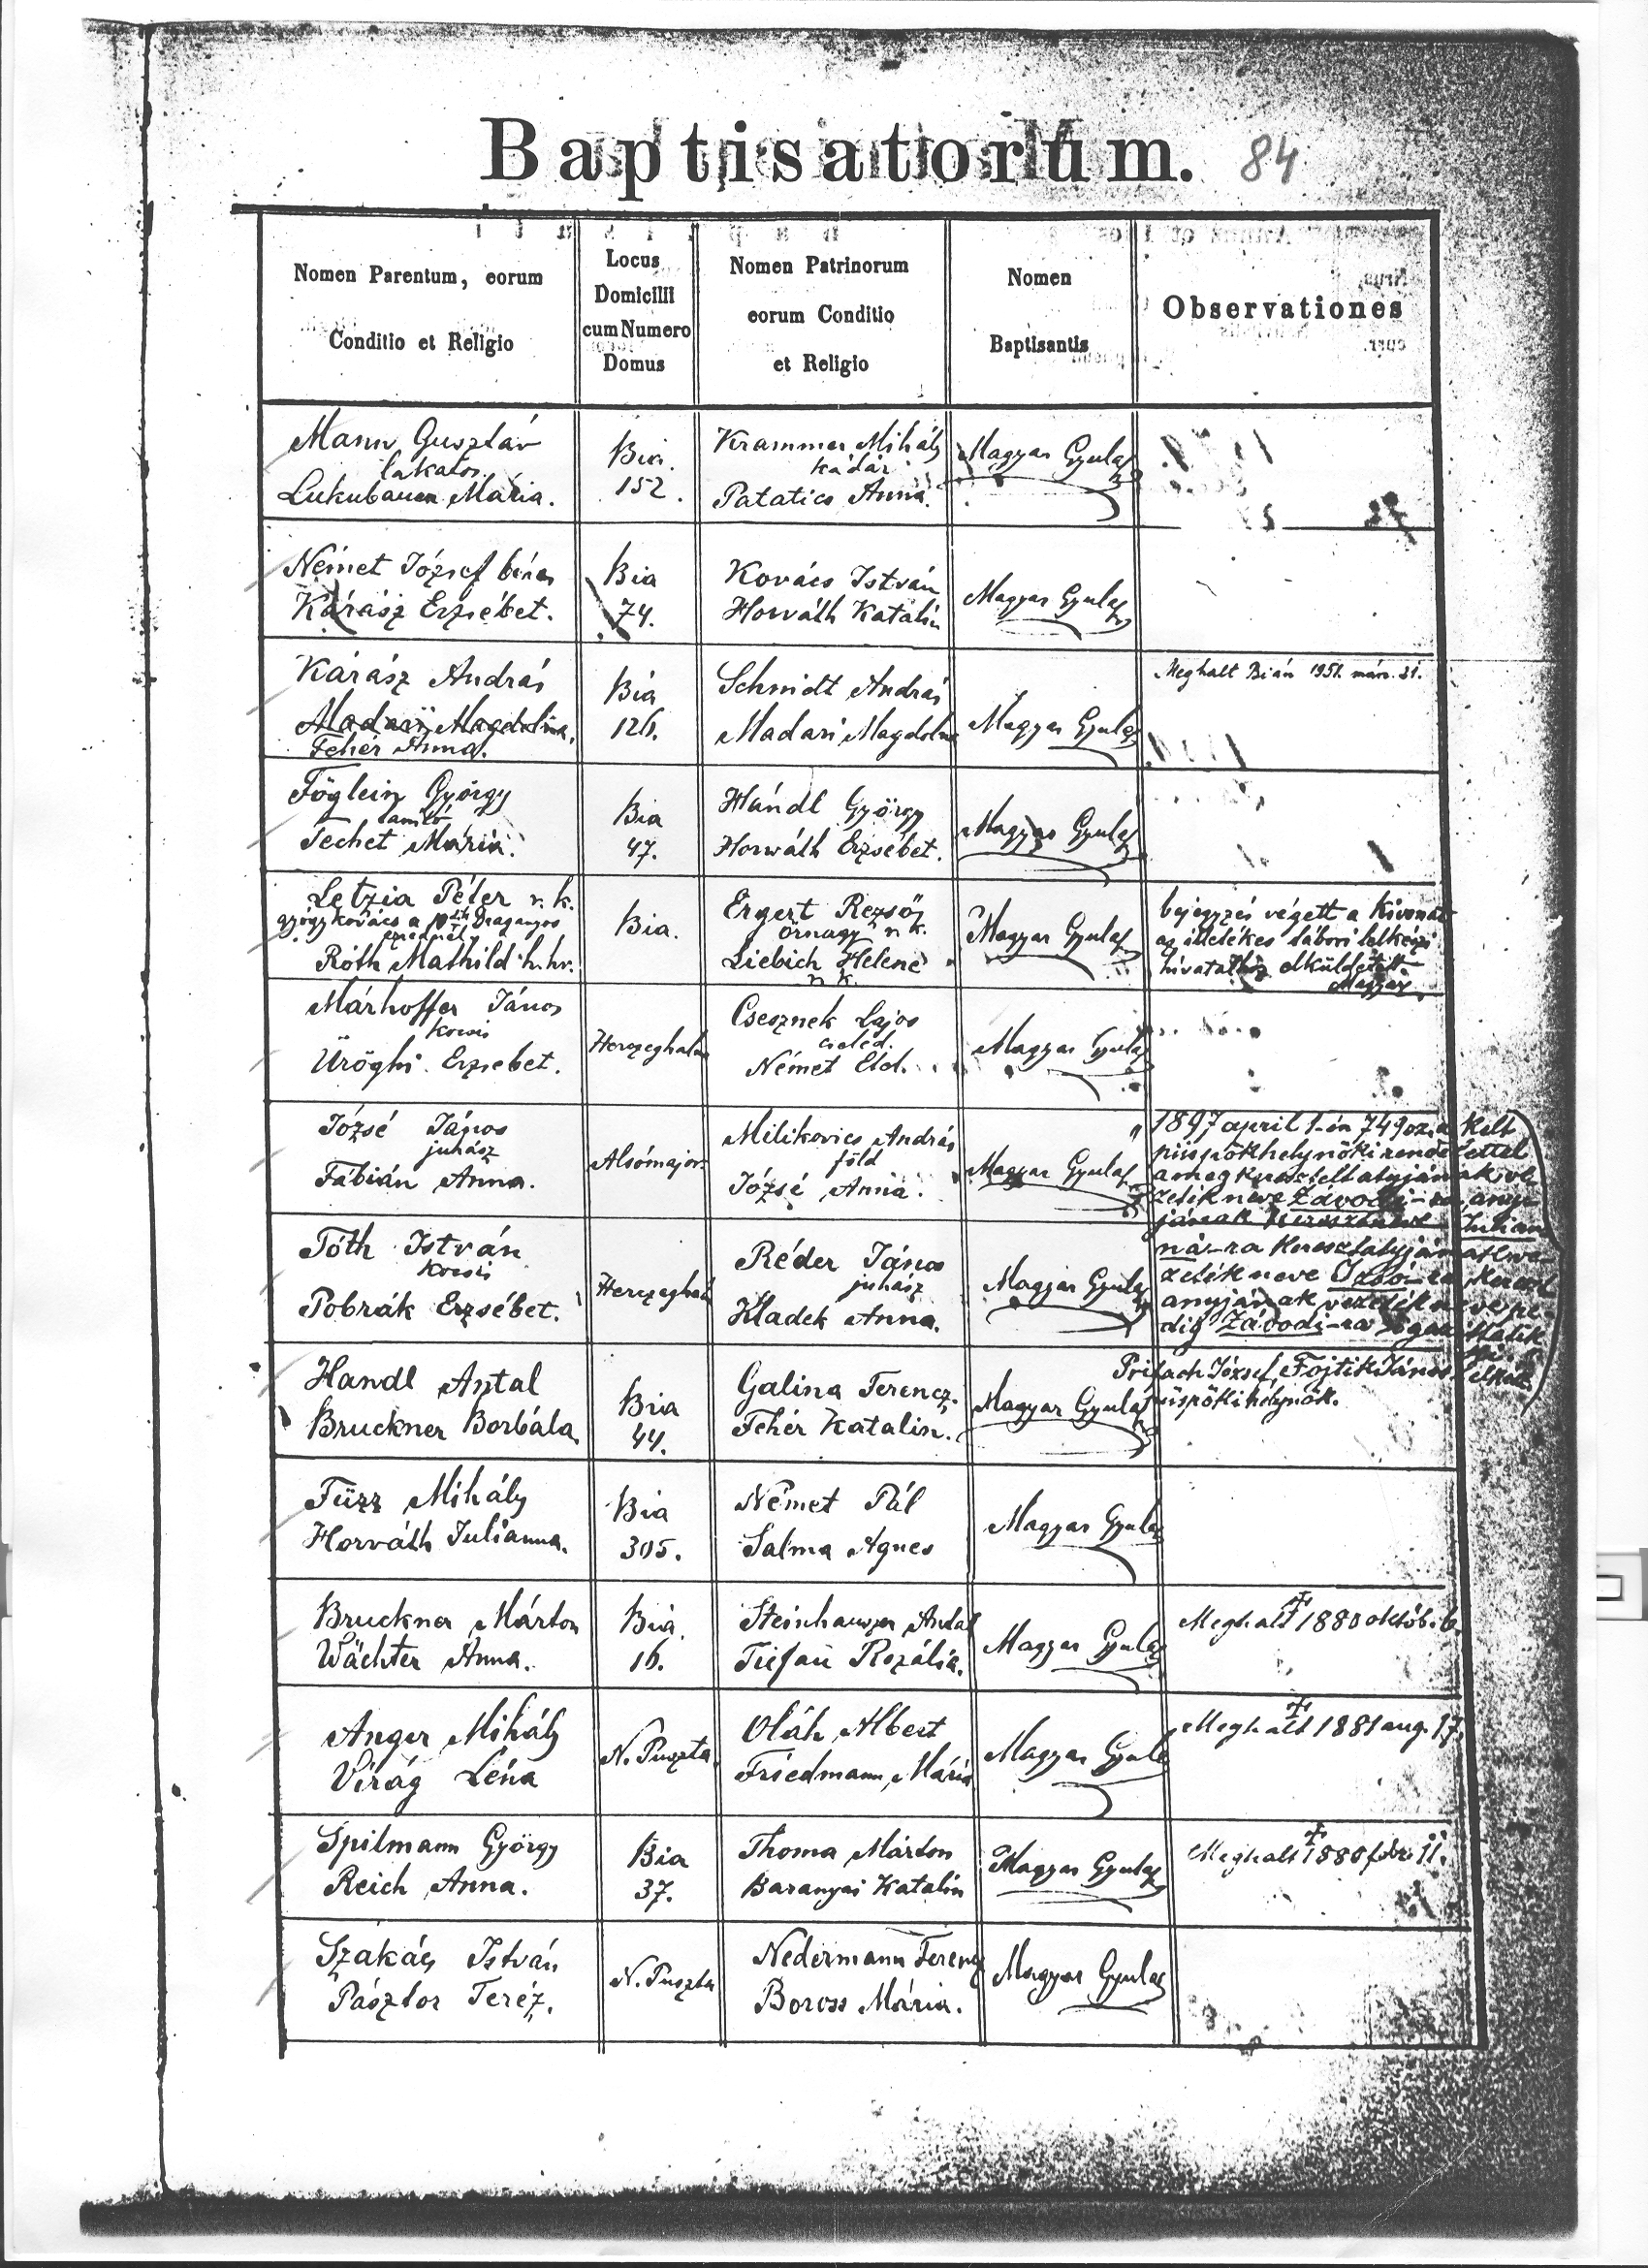 Baptisatorium. 84
Nomen Parentum, eorum
Conditio et Religio
Locus
Domicilii
cum Numero
Domus
Nomen Patrinorum
eorum Conditio
et Religio
Nomen
Baptisantis
Observationes
Mann Gusztáv
lakatos
Mária.
Bia.
152.
Krammer Mihály
kádár
Patatics Anna.
Magyar Gyula
Német József béres
Kárász Erzsébet.
Bia
74.
Kovács István
Horváth Katalin
Magyar Gyula
Kárász András
Madari Magdolna.
Fehér Anna.
Bia
126.
Schmidt András
Madari Magdolna
Magyar Gyula
Meghalt Bián 1951. márc. 21.
Föglein György
Techet Mária.
Bia
47.
Hándl György
Horwáth Erzsébet.
Magyar Gyula
Letzia Péter r. k.
gyógykovács a
ezrednél
Róth Mathild h. hv.
Bia.
Ergert Rezső
őrnagy r. k.
Liebich Helene
r. k.
Magyar Gyula
bejegyzés végett a kivonat
az illetékes tábori lelkészi
hivatalhoz elküldetett.
Magyar
Márhoffer János
kocsis
Üröghi Erzsébet.
Herczeghalom
Csesznek Lajos
cseléd.
Német Eld.
Magyar Gyula
Józsé János
juhász
Fábián Anna.
Alsómajor
Milikovics András
föld
Józsé Anna.
Magyar Gyula
1897 april 1-én 749 sz. a. kelt
püspökhelynöki rendelettel
a megkeresztelt atyjának ve
zeték neve Závodi-ra, any
jának keresztneve Julian
ná-ra keresztatyjának ve
zeték neve
anyjának vezetékneve pe
dig Závodi-ra
Prifach József, Fojtik János
püspöki helynök.
Tóth István
kocsis
Pobrák Erzsébet.
Herczeghal
Réder János
juhász
Hladek Anna.
Magyar Gyula
Handl Antal
Bruckner Borbála
Bia
44.
Galina Ferencz.
Fehér Katalin.
Magyar Gyula
Füzz Mihály
Horváth Julianna.
Bia
305.
Német Pál
Salma Agnes
Magyar Gyula
Bruckner Márton
Wächter Anna.
Bia.
16.
Steinhauser Antal
Rozália.
Magyar Gyula
Meghalt 1880 október 6.
Anger Mihály
Virág Léna
N. Puszta
Oláh Albert
Friedmann Mária
Magyar Gyula
Meghalt 1881 aug. 17.
Spilmann György
Reich Anna.
Bia
37.
Thoma Márton
Baranyai Katalin
Magyar Gyula
Meghalt 1880 febr. 11.
Szakács István
Pásztor Teréz.
N. Puszta
Nedermann Ferencz
Boross Mária.
Magyar Gyula